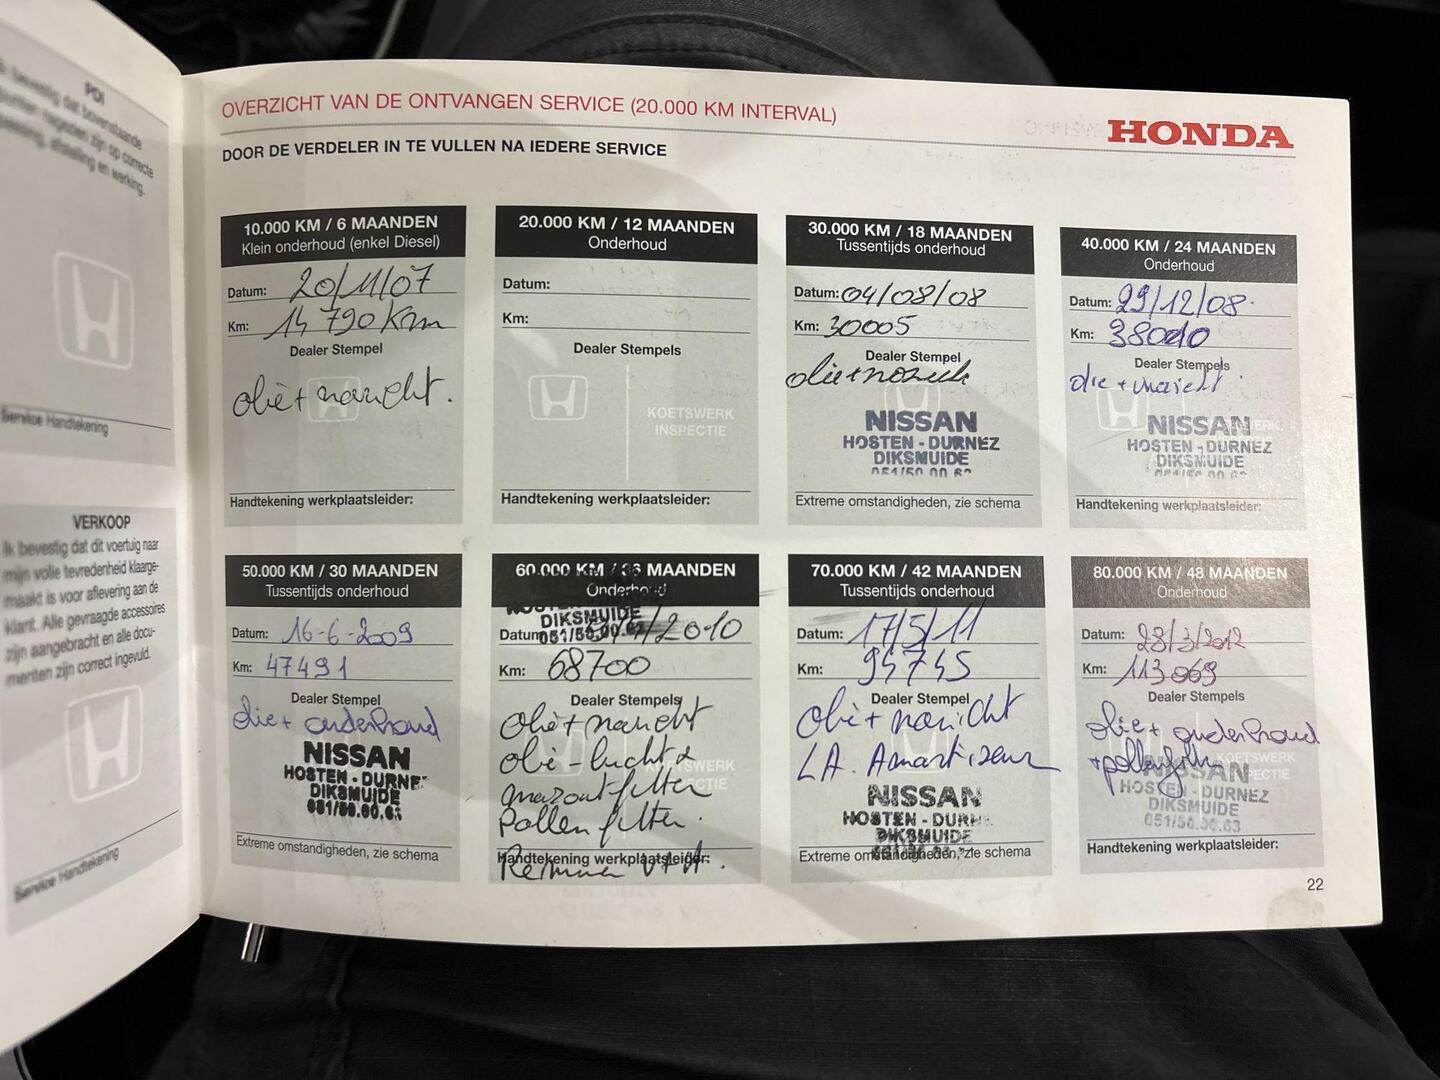 PDI
Service Handtekening
VERKOOP
Ik bevestig dat dit voertuig naar
mijn volle tevredenheid klaarge-
maakt is voor aflevering aan de
klant. Alle gevraagde accessoires
zijn aangebracht en alle docu-
menten zijn correct ingevuld.
Service Handtekening
OVERZICHT VAN DE ONTVANGEN SERVICE (20.000 KM INTERVAL)
HONDA
DOOR DE VERDELER IN TE VULLEN NA IEDERE SERVICE
10.000 KM / 6 MAANDEN
Klein onderhoud (enkel Diesel)
Datum: 20/11/07
Km: 14 790 Km
Dealer Stempel
olie + naricht.
Handtekening werkplaatsleider:
20.000 KM / 12 MAANDEN
Onderhoud
Datum:
Km:
Dealer Stempels
KOETSWERK
INSPECTIE
Handtekening werkplaatsleider:
30.000 KM / 18 MAANDEN
Tussentijds onderhoud
Datum: 04/08/08
Km: 30005
Dealer Stempel
olie +
NISSAN
HOSTEN - DURNEZ
DIKSMUIDE
051/50.00.63
Extreme omstandigheden, zie schema
40.000 KM / 24 MAANDEN
Onderhoud
Datum: 29/12/08
Km: 38010
Dealer Stempels
olie +
NISSAN
HOSTEN - DURNEZ
DIKSMUIDE
Handtekening werkplaatsleider:
50.000 KM / 30 MAANDEN
Tussentijds onderhoud
Datum: 16-6-2009
Km: 47491
Dealer Stempel
olie + onderhoud
NISSAN
HOSTEN - DURNEZ
DIKSMUIDE
051/50.00.63
Extreme omstandigheden, zie schema
60.000 KM / 36 MAANDEN
Onderhoud
HOSTEN
DIKSMUIDE
051/50.00.63
Datum: /2010
Km: 68700
Dealer Stempels
olie + naricht
olie - lucht &
mazout filter
Pollen filter.
Handtekening werkplaatsleider:
Remmen V+A.
70.000 KM / 42 MAANDEN
Tussentijds onderhoud
Datum: 17/5/11
Km: 94745
Dealer Stempel
olie + naricht
LA. Amortiseur
NISSAN
HOSTEN - DURN
DIKSMUIDE
Extreme omstandigheden, zie schema
80.000 KM / 48 MAANDEN
Onderhoud
Datum: 28/3/2012
Km: 113069
Dealer Stempels
olie + onderhoud
+ pollenfilt
KOETSWERK
INSPECTIE
NISSAN
HOSTEN - DURNEZ
DIKSMUIDE
051/50.00.63
Handtekening werkplaatsleider:
22